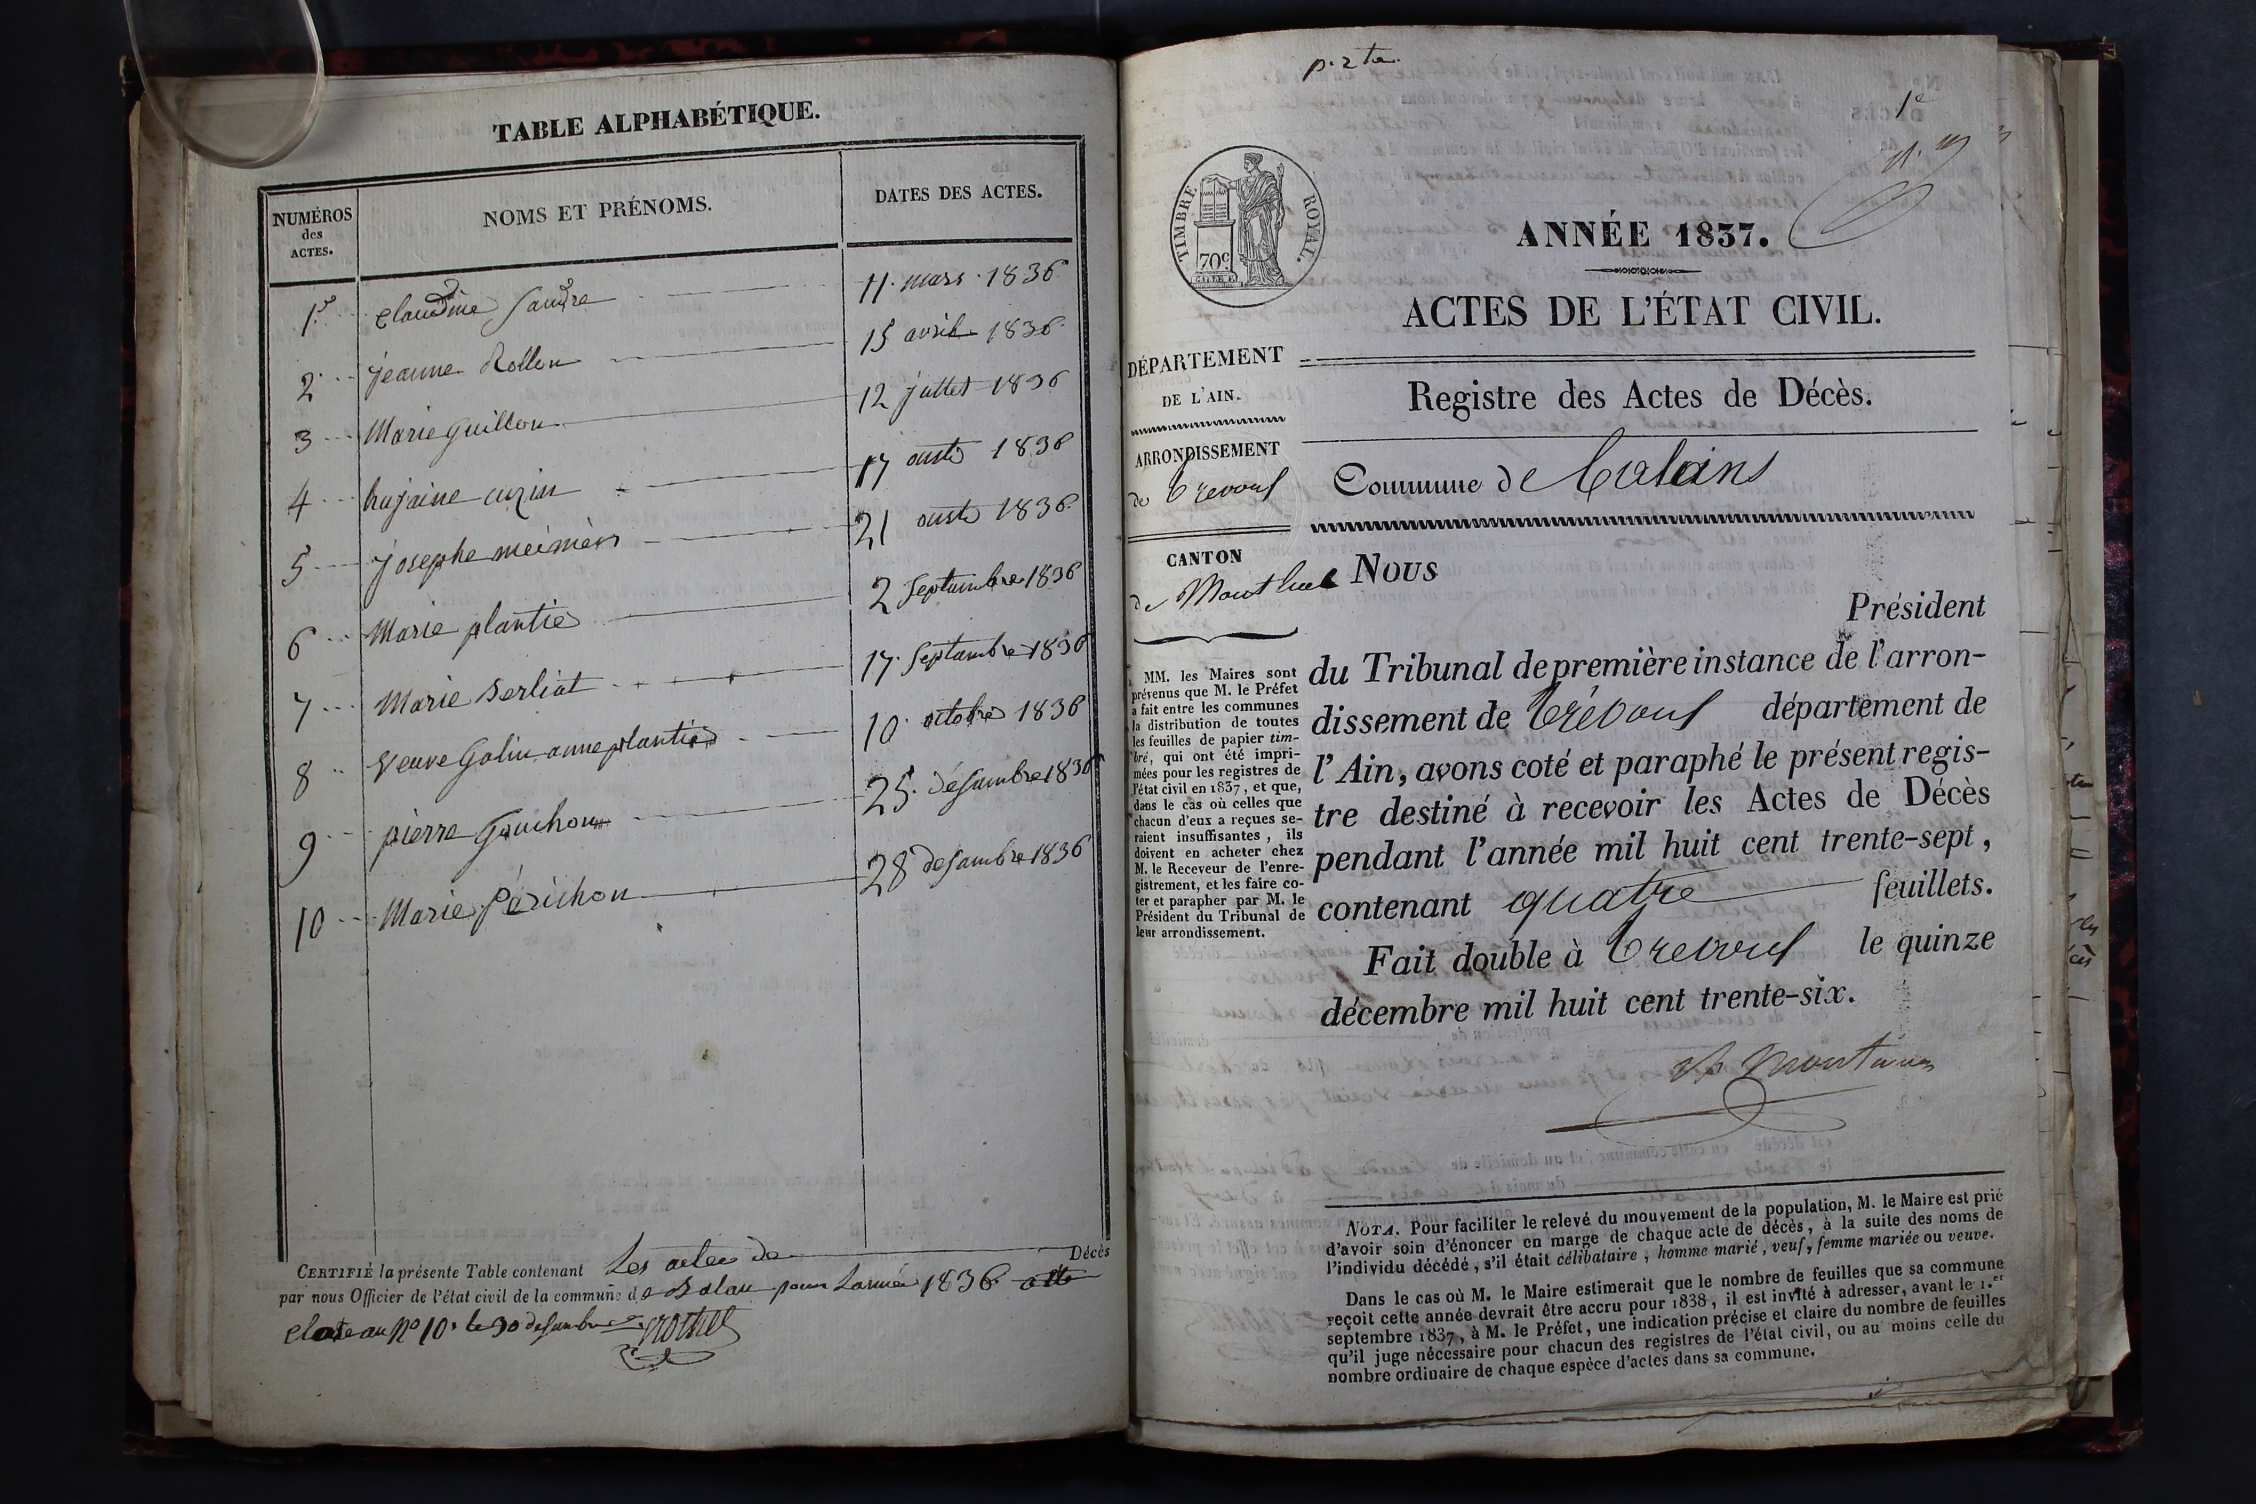 TABLE ALPHABÉTIQUE.
NUMÉROS
des
ACTES.
NOMS ET PRÉNOMS.
DATES DES ACTES.
1er Claudine Saudre 11 mars 1836
2 jeanne Rollon 15 avril 1836
3 Marie guillon 12 jullet 1836
4 hujaine cuzin 17 ouste 1836
5 josephe 21 ouste 1836
6 Marie plantie 2 Septambre 1836
7 Marie Berliat 17 Septambre 1836
8 Veuve Golin anne plantie 10 octobre 1836
9 pierre Gouchon 25 désambre 1836
10 Marie Périchon 28 desambre 1836
CERTIFIÉ la présente Table contenant Les actes de Décès
par nous Officier de l'état civil de la commune de Balan pour Lannée 1836
Close au No 10 le 30 desambre
p. 2 te
1e
TIMBRE ROYAL.
70c
ANNÉE 1837.
ACTES DE L'ÉTAT CIVIL.
DÉPARTEMENT
DE L'AIN.
Registre des Actes de Décès.
ARRONDISSEMENT
de Trevoux
Commune de Balans
CANTON
de Montluel
Nous
Président
du Tribunal de première instance de l'arron-
dissement de Trévoux département de
l'Ain, avons coté et paraphé le présent regis-
tre destiné à recevoir les Actes de Décès
pendant l'année mil huit cent trente-sept,
contenant quatre feuillets.
Fait double à Trevoux le quinze
décembre mil huit cent trente-six.
MM. les Maires sont
prévenus que M. le Préfet
a fait entre les communes
la distribution de toutes
les feuilles de papier tim-
bré, qui ont été impri-
mées pour les registres de
l'état civil en 1837, et que,
dans le cas où celles que
chacun d'eux a reçues se-
raient insuffisantes, ils
doivent en acheter chez
M. le Receveur de l'enre-
gistrement, et les faire co-
ter et parapher par M. le
Président du Tribunal de
leur arrondissement.
NOTA. Pour faciliter le relevé du mouvement de la population, M. le Maire est prié
d'avoir soin d'énoncer en marge de chaque acte de décès, à la suite des noms de
l'individu décédé, s'il était célibataire, homme marié, veuf, femme mariée ou veuve.
Dans le cas où M. le Maire estimerait que le nombre de feuilles que sa commune
reçoit cette année devrait être accru pour 1838, il est invité à adresser, avant le 1.er
septembre 1837, à M. le Préfet, une indication précise et claire du nombre de feuilles
qu'il juge nécessaire pour chacun des registres de l'état civil, ou au moins celle du
nombre ordinaire de chaque espèce d'actes dans sa commune.